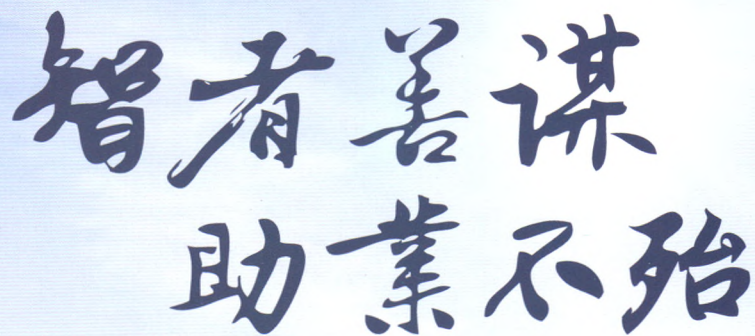 智者善谋
助業不殆